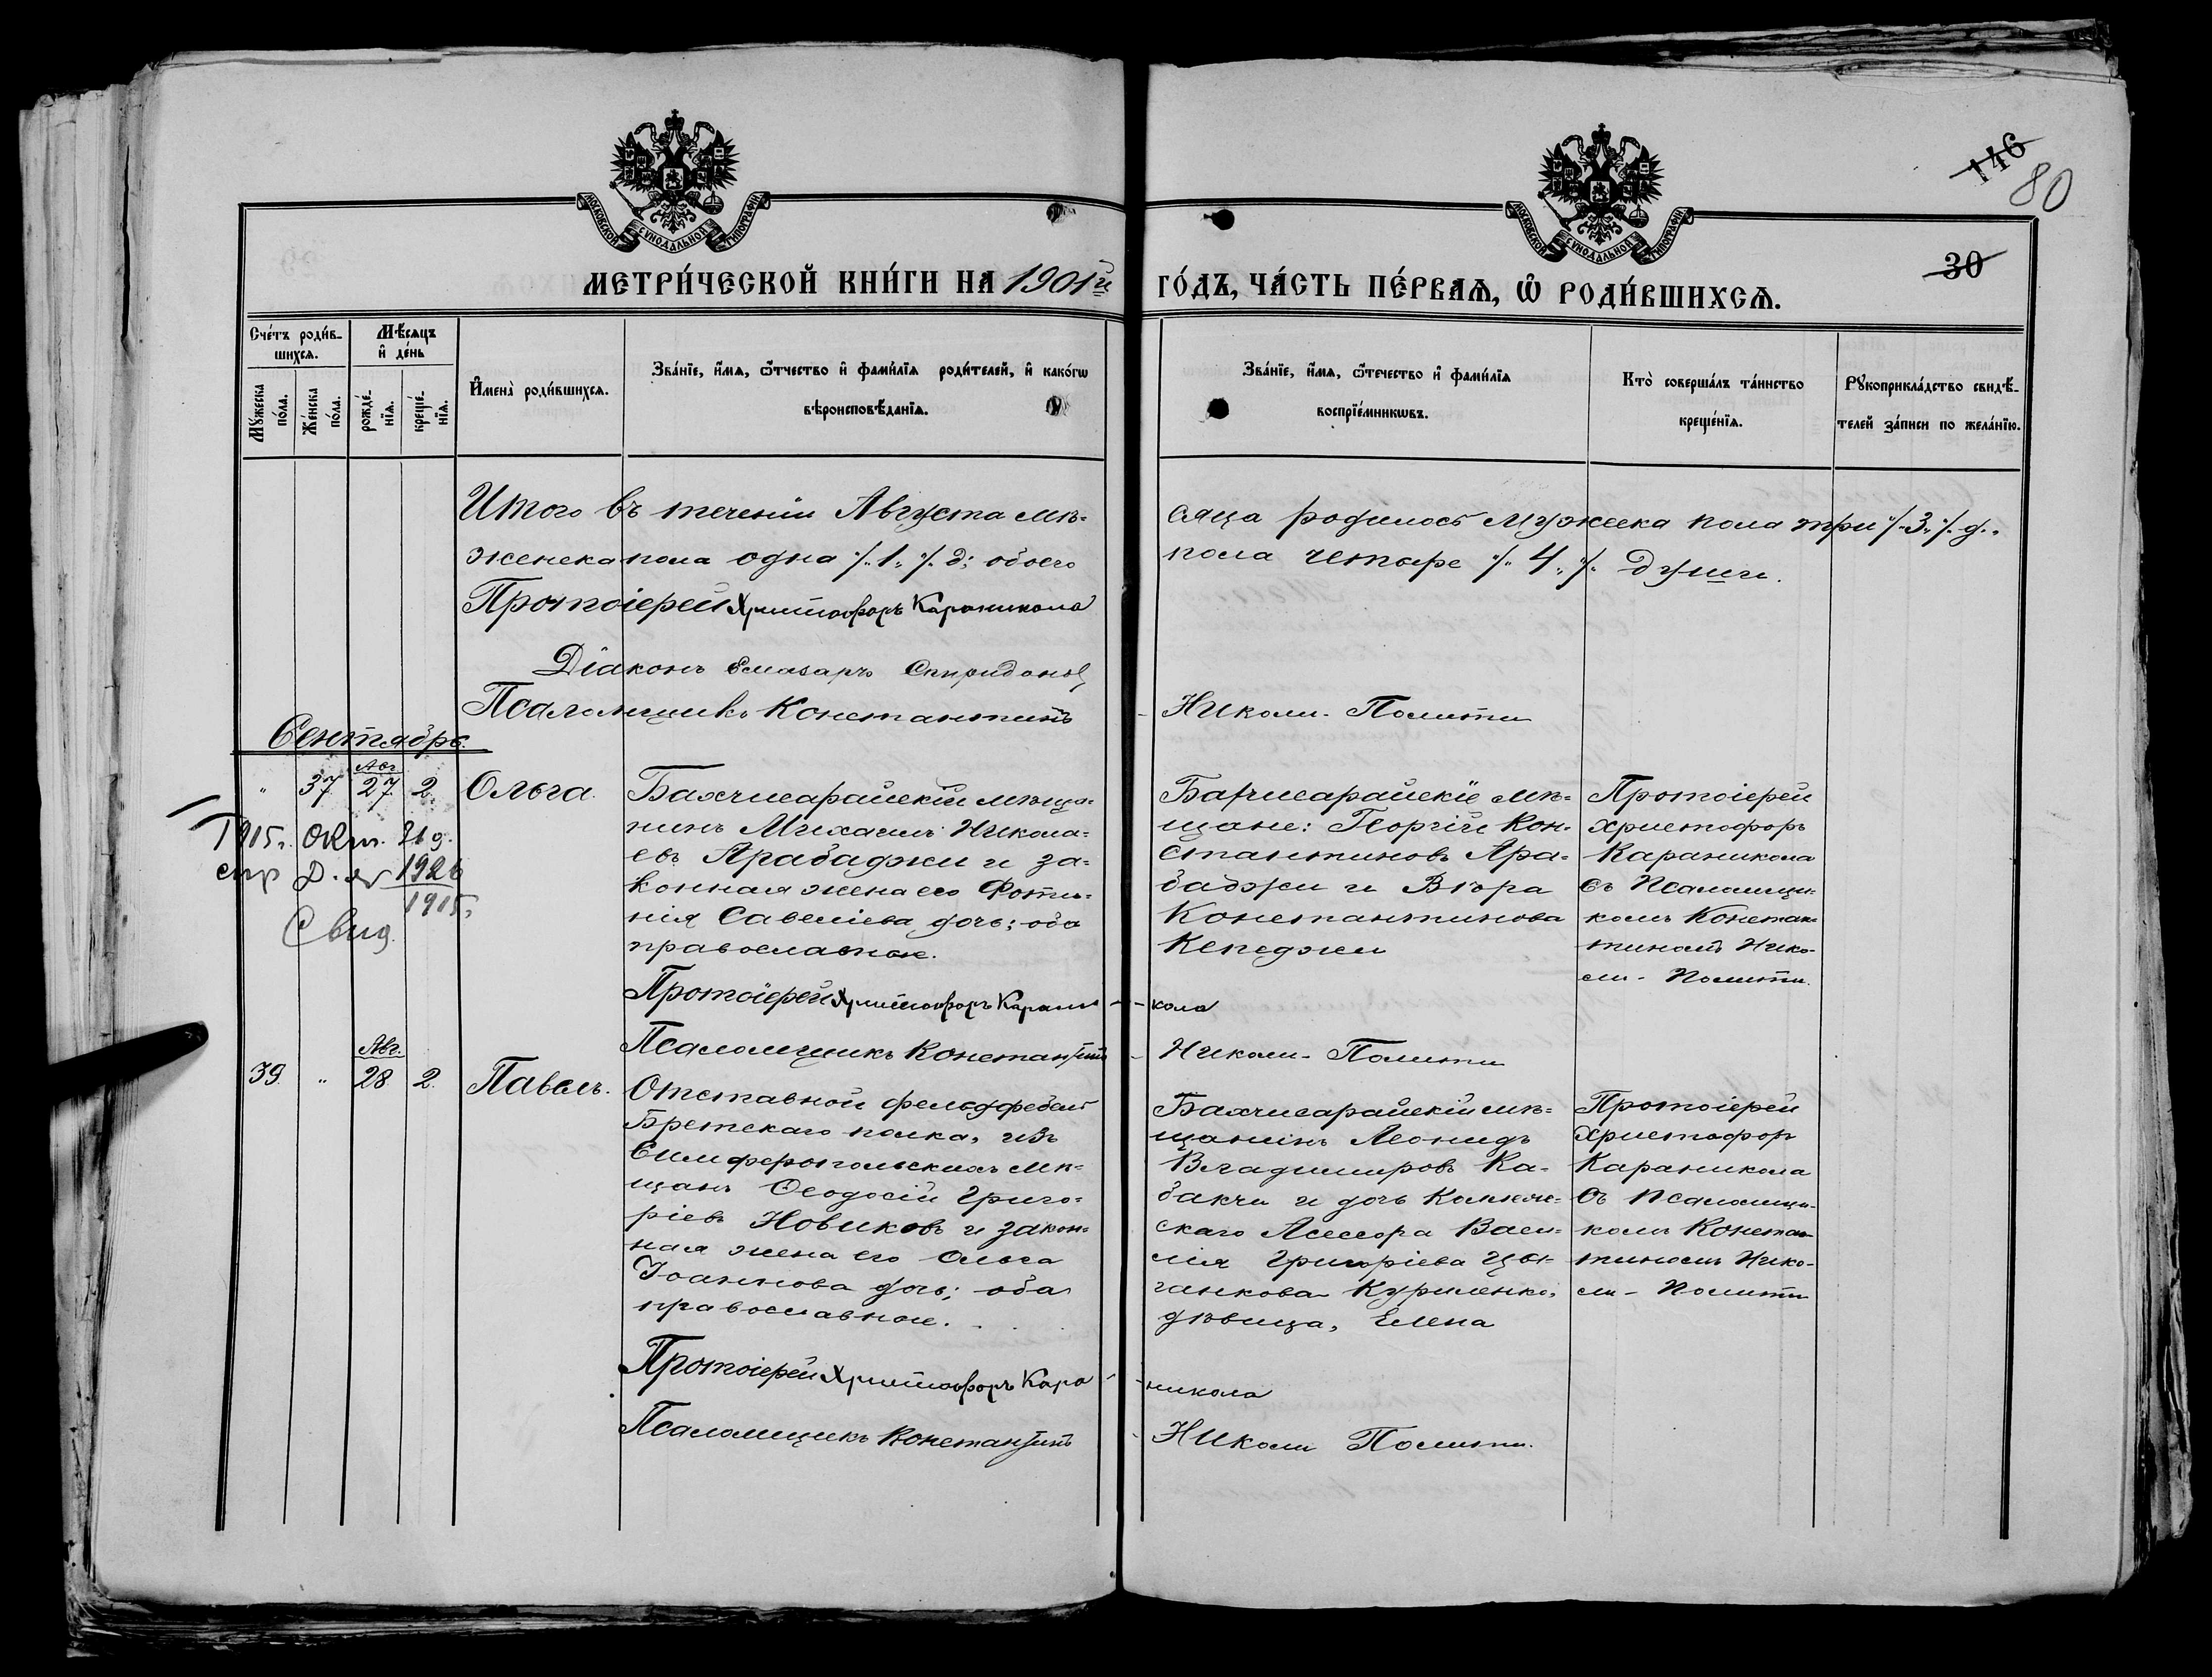 146
80
30
МОСКОВСКОЙ СѴНОДАЛЬНОЙ ТИПОГРАФІИ
МОСКОВСКОЙ СѴНОДАЛЬНОЙ ТИПОГРАФІИ
МЕТРИ́ЧЕСКОЙ КНИ́ГИ НА 1901й ГО́ДЪ, ЧА́СТЬ ПЕ́РВАѦ, Ѽ РОДИ́ВШИХСѦ.
Сче́тъ роди́в-
шихсѧ.
Мѣ́сѧцъ
и҆ де́нь
Мꙋжеска по́ла.
Же́нска по́ла.
рожде́-нїѧ.
креще́-нїѧ.
И҆мена̀ роди́вшихсѧ.
Зва́нїе, и҆́мѧ, ѻ҆́тчество и҆ фами́лїѧ роди́телей, и҆ како́гѡ
вѣроисповѣ́данїѧ.
Зва́нїе, и҆́мѧ, ѻ҆те́чество и҆ фами́лїѧ
воспрїе́мникѡвъ.
Кто̀ соверша́лъ та́инство
креще́нїѧ.
Рꙋкоприкла́дство свидѣ́-
телей за́писи по жела́нїю.
Итого въ теченіи Августа мѣ-
сяца родилось мужеска пола три /„3„/ д.,
женска пола одна /„1„/ д; обоего
пола четыре /„4„/ души.
Протоіерей Христофоръ Караникола
Діаконъ Елиазаръ Спиридоновъ
Псаломщикъ Константинъ - Николи-Политти
Сентябрь.
„ 37 Авг. 27 2. Ольга.
Бахчисарайскій мѣща-
нинъ Михаилъ Никола-
евъ Арабаджи и за-
конная жена его Фоти-
нія Савеліева дочь; оба
православные.
Бахчисарайскіе мѣ-
щане: Георгій Кон-
стантиновъ Ара-
баджи и Вѣра
Константинова
Кепеджи
Протоіерей
Христофоръ
Караникола
съ Псаломщи-
комъ Констан-
тиномъ Нико-
ли-Политти.
1915г. Окт. 21 д.
спр. 1926
1915г.
Свид.
Протоіерей Христофоръ Карани - - кола
Псаломщикъ Константинъ - Николи-Политти
39. „ Авг. 28 2. Павелъ.
Отставной фельдфебель
Брестскаго полка, изъ
Симферопольскихъ мѣ-
щанъ Ѳеодосій Григо-
ріевъ Новиковъ и закон-
ная жена его Ольга
Іоаннова дочь; оба
православные.
Бахчисарайскій мѣ-
щанинъ Леонидъ
Владимировъ Ка-
бакчи и дочь Коллеж-
скаго Асессора Васи-
лія Григоріева Цы-
ганкова Курленко,
дѣвица, Елена
Протоіерей
Христофор
Караникола
съ Псаломщи-
комъ Констан-
тиномъ Нико-
ли-Политти
Протоіерей Христофоръ Кара - - никола
Псаломщикъ Константинъ - Николи Политти.